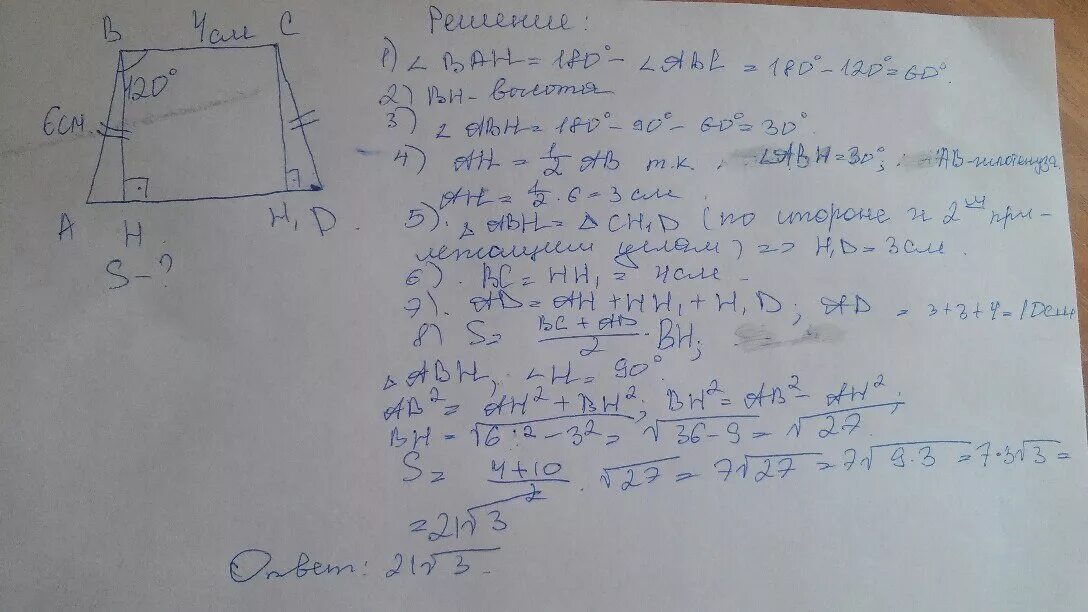 B 4см C
120°
6см.
A H H₁ D
S-?
Решение:
1) ∠BAH = 180° - ∠ABC = 180° - 120° = 60°.
2) BH - высота
3) ∠ABH = 180° - 90° - 60° = 30°.
4) AH = 1/2 AB т.к. ∠ABH = 30°; AB-гипотенуза.
AH = 1/2 · 6 = 3 см.
5). △ABH = △CH₁D (по стороне и 2ум при-
лежащим углам) => H₁D = 3 см.
6) BC = HH₁ = 4 см.
7). AD = AH + HH₁ + H₁D; AD = 3+3+4 = 10 см
8) S = (BC + AD)/2 · BH;
△ABH, ∠H = 90°.
AB² = AH² + BH²; BH² = AB² - AH²;
BH = √(6² - 3²) = √(36 - 9) = √27.
S = (4+10)/2 · √27 = 7√27 = 7√(9·3) = 7·3√3 =
= 21√3
Ответ: 21√3.